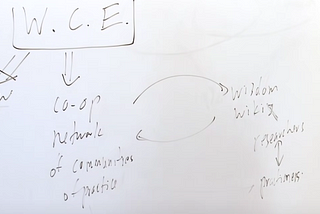 W. C. E.
co-op
network
of communities
of practice
wisdom
wikis
researchers